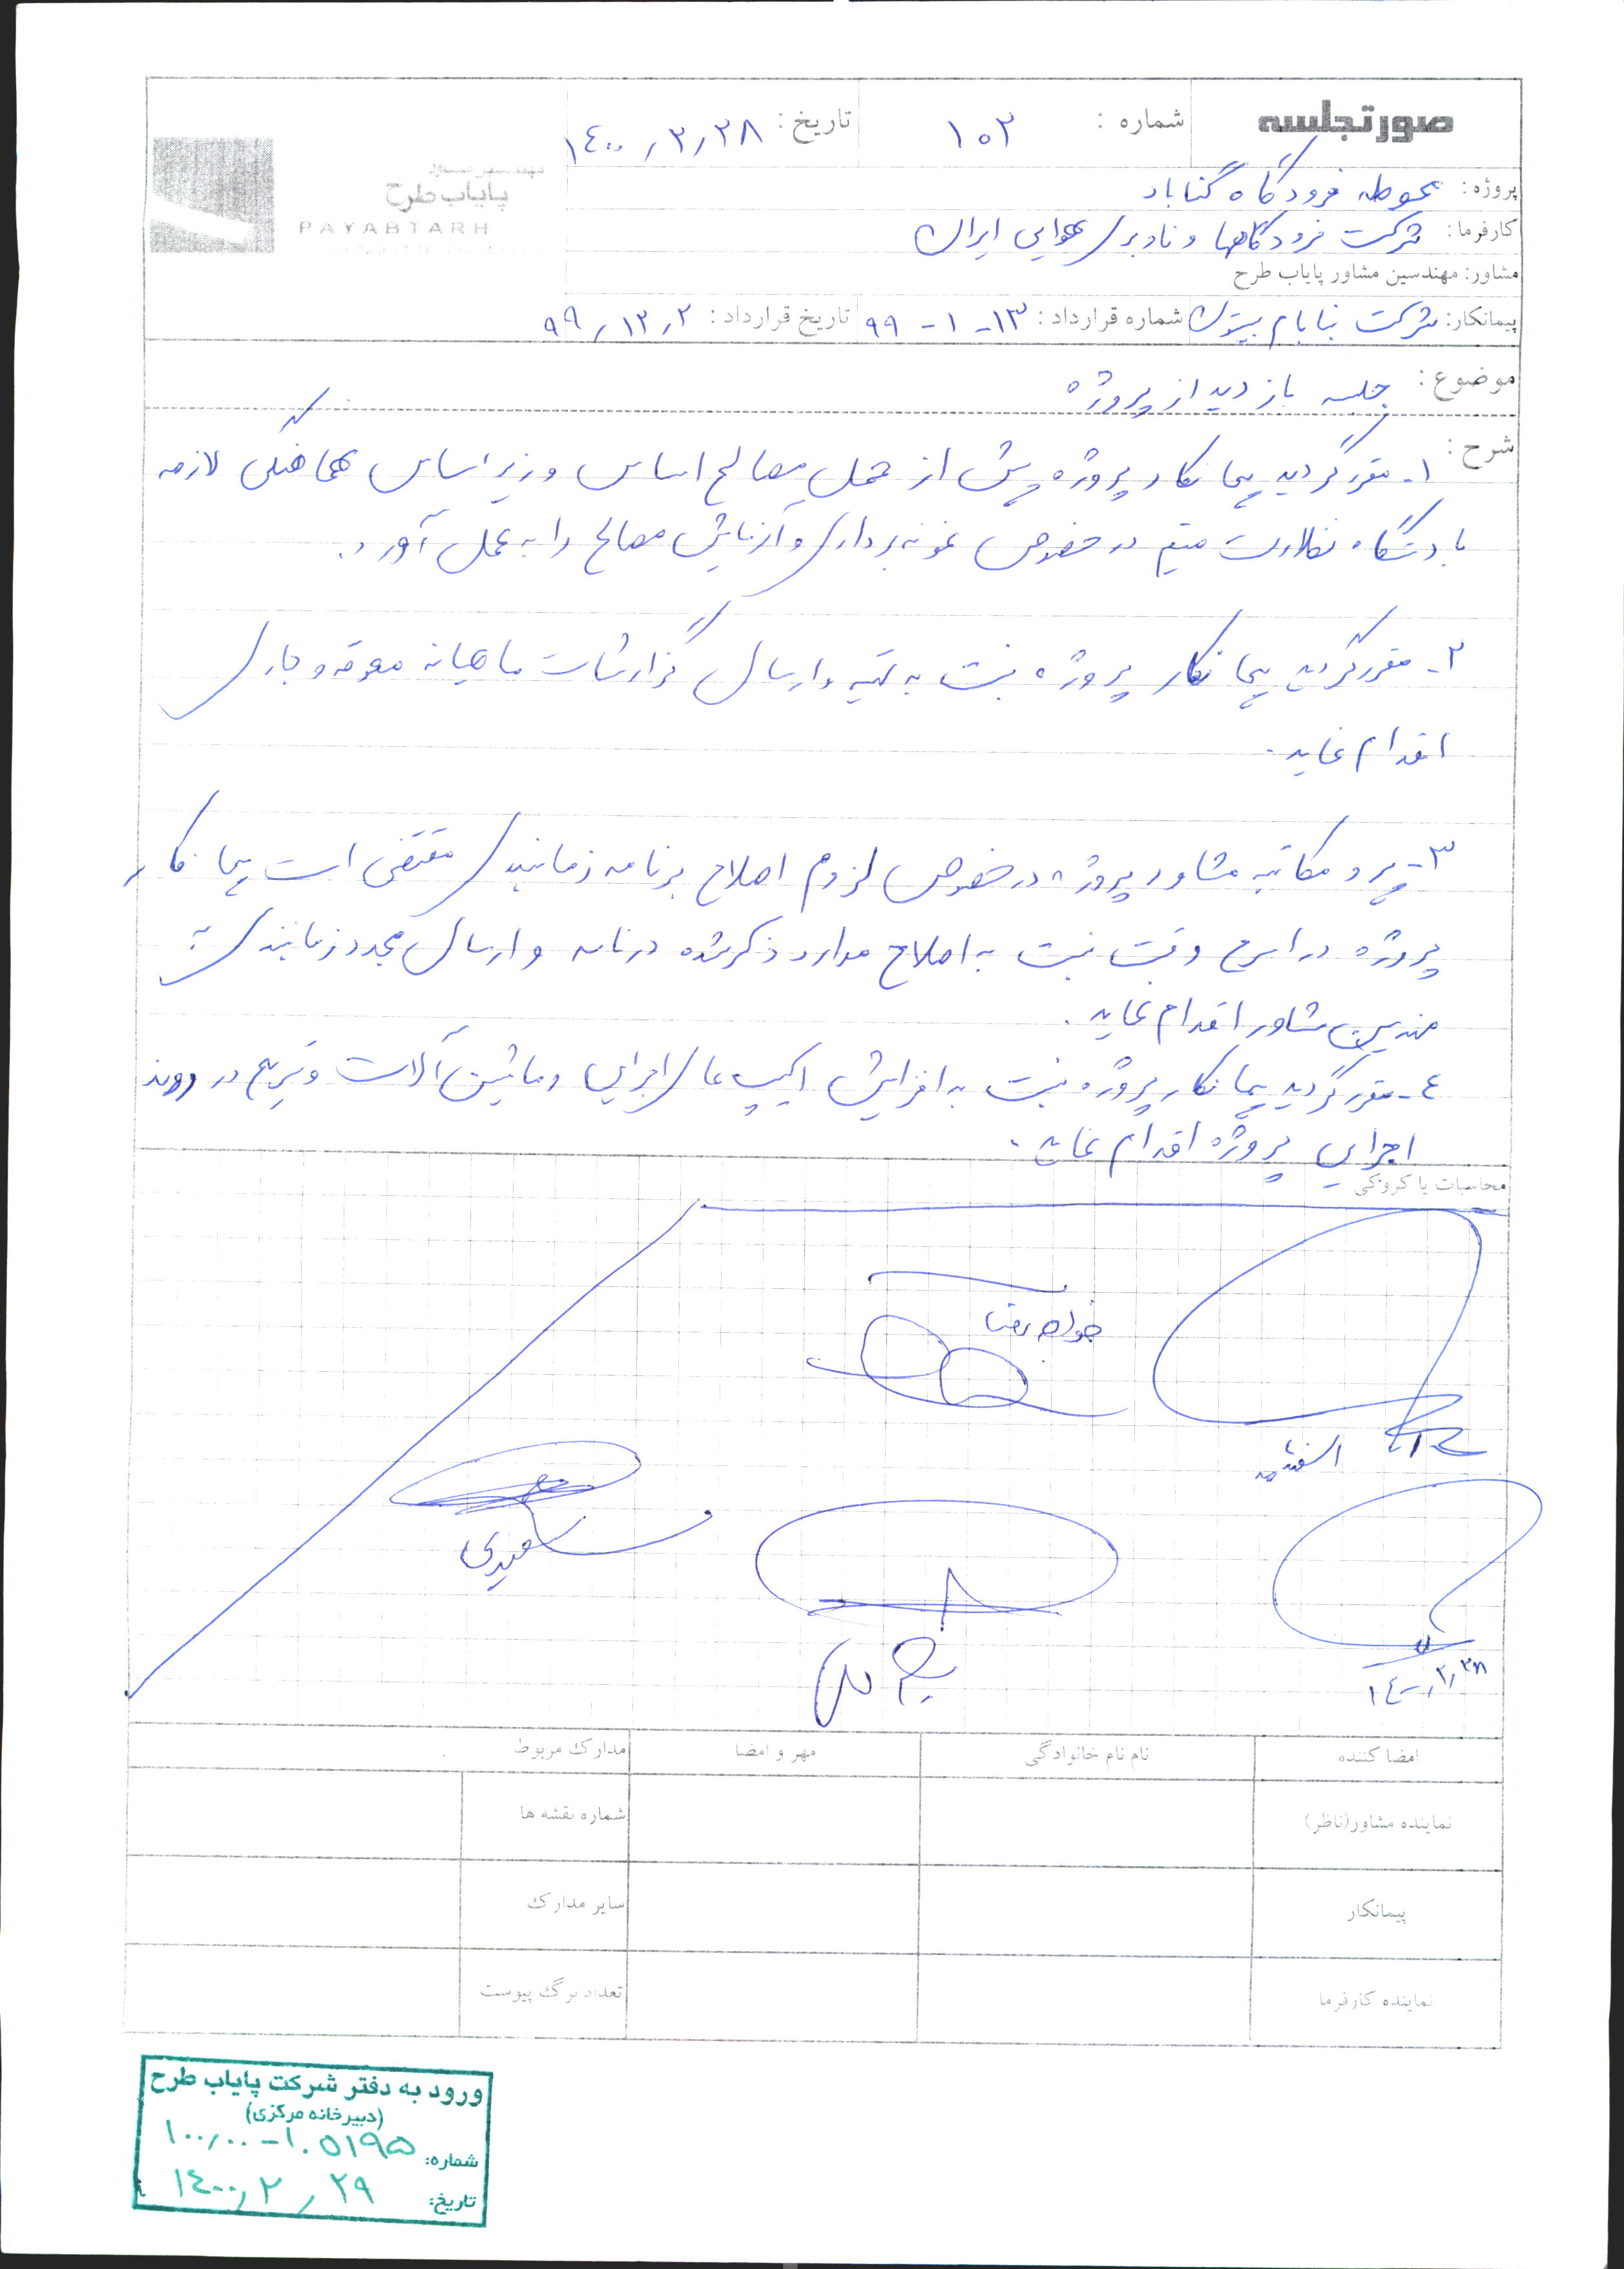 صورتجلسه
شماره : ۱۰۲
تاریخ : ۱۴۰۰/۲/۲۸
مهندسین مشاور
پایاب طرح
PAYABTARH
پروژه : محوطه فرودگاه گناباد
کارفرما : شرکت فرودگاهها و ناوبری هوایی ایران
مشاور: مهندسین مشاور پایاب طرح
پیمانکار: شرکت بنا بام بیستون شماره قرارداد : ۱۳-۱-۹۹ تاریخ قرارداد : ۹۹/۱۲/۲
موضوع : جلسه بازدید از پروژه
شرح :
۱- مقرر گردید پیمانکار پروژه پیش از حمل مصالح اساس و زیراساس هماهنگی لازمه
با دستگاه نظارت مقیم در خصوص نمونه برداری و آزمایش مصالح را به عمل آورد.
۲- مقرر گردید پیمانکار پروژه نسبت به تهیه و ارسال گزارشات ماهیانه معوقه و جاری
اقدام نماید.
۳- پیرو مکاتبه مشاور پروژه در خصوص لزوم اصلاح برنامه زمانبندی مقتضی است پیمانکار
پروژه در اسرع وقت نسبت به اصلاح موارد ذکر شده در نامه و ارسال مجدد زمانبندی به
مهندسین مشاور اقدام نماید.
۴- مقرر گردید پیمانکار پروژه نسبت به افزایش اکیپ های اجرایی و ماشین آلات و تسریع در روند
اجرایی پروژه اقدام نماید.
محاسبات یا کروکی
سعیدی
۱۴۰۰/۲/۲۸
امضا کننده نام نام خانوادگی مهر و امضا مدارک مربوط
نماینده مشاور(ناظر) شماره نقشه ها
پیمانکار سایر مدارک
نماینده کارفرما تعداد برگ پیوست
ورود به دفتر شرکت پایاب طرح
(دبیرخانه مرکزی)
شماره: ۱۰۰/۰۰-۱۰۵۱۹۵
تاریخ: ۱۴۰۰/۲/۲۹